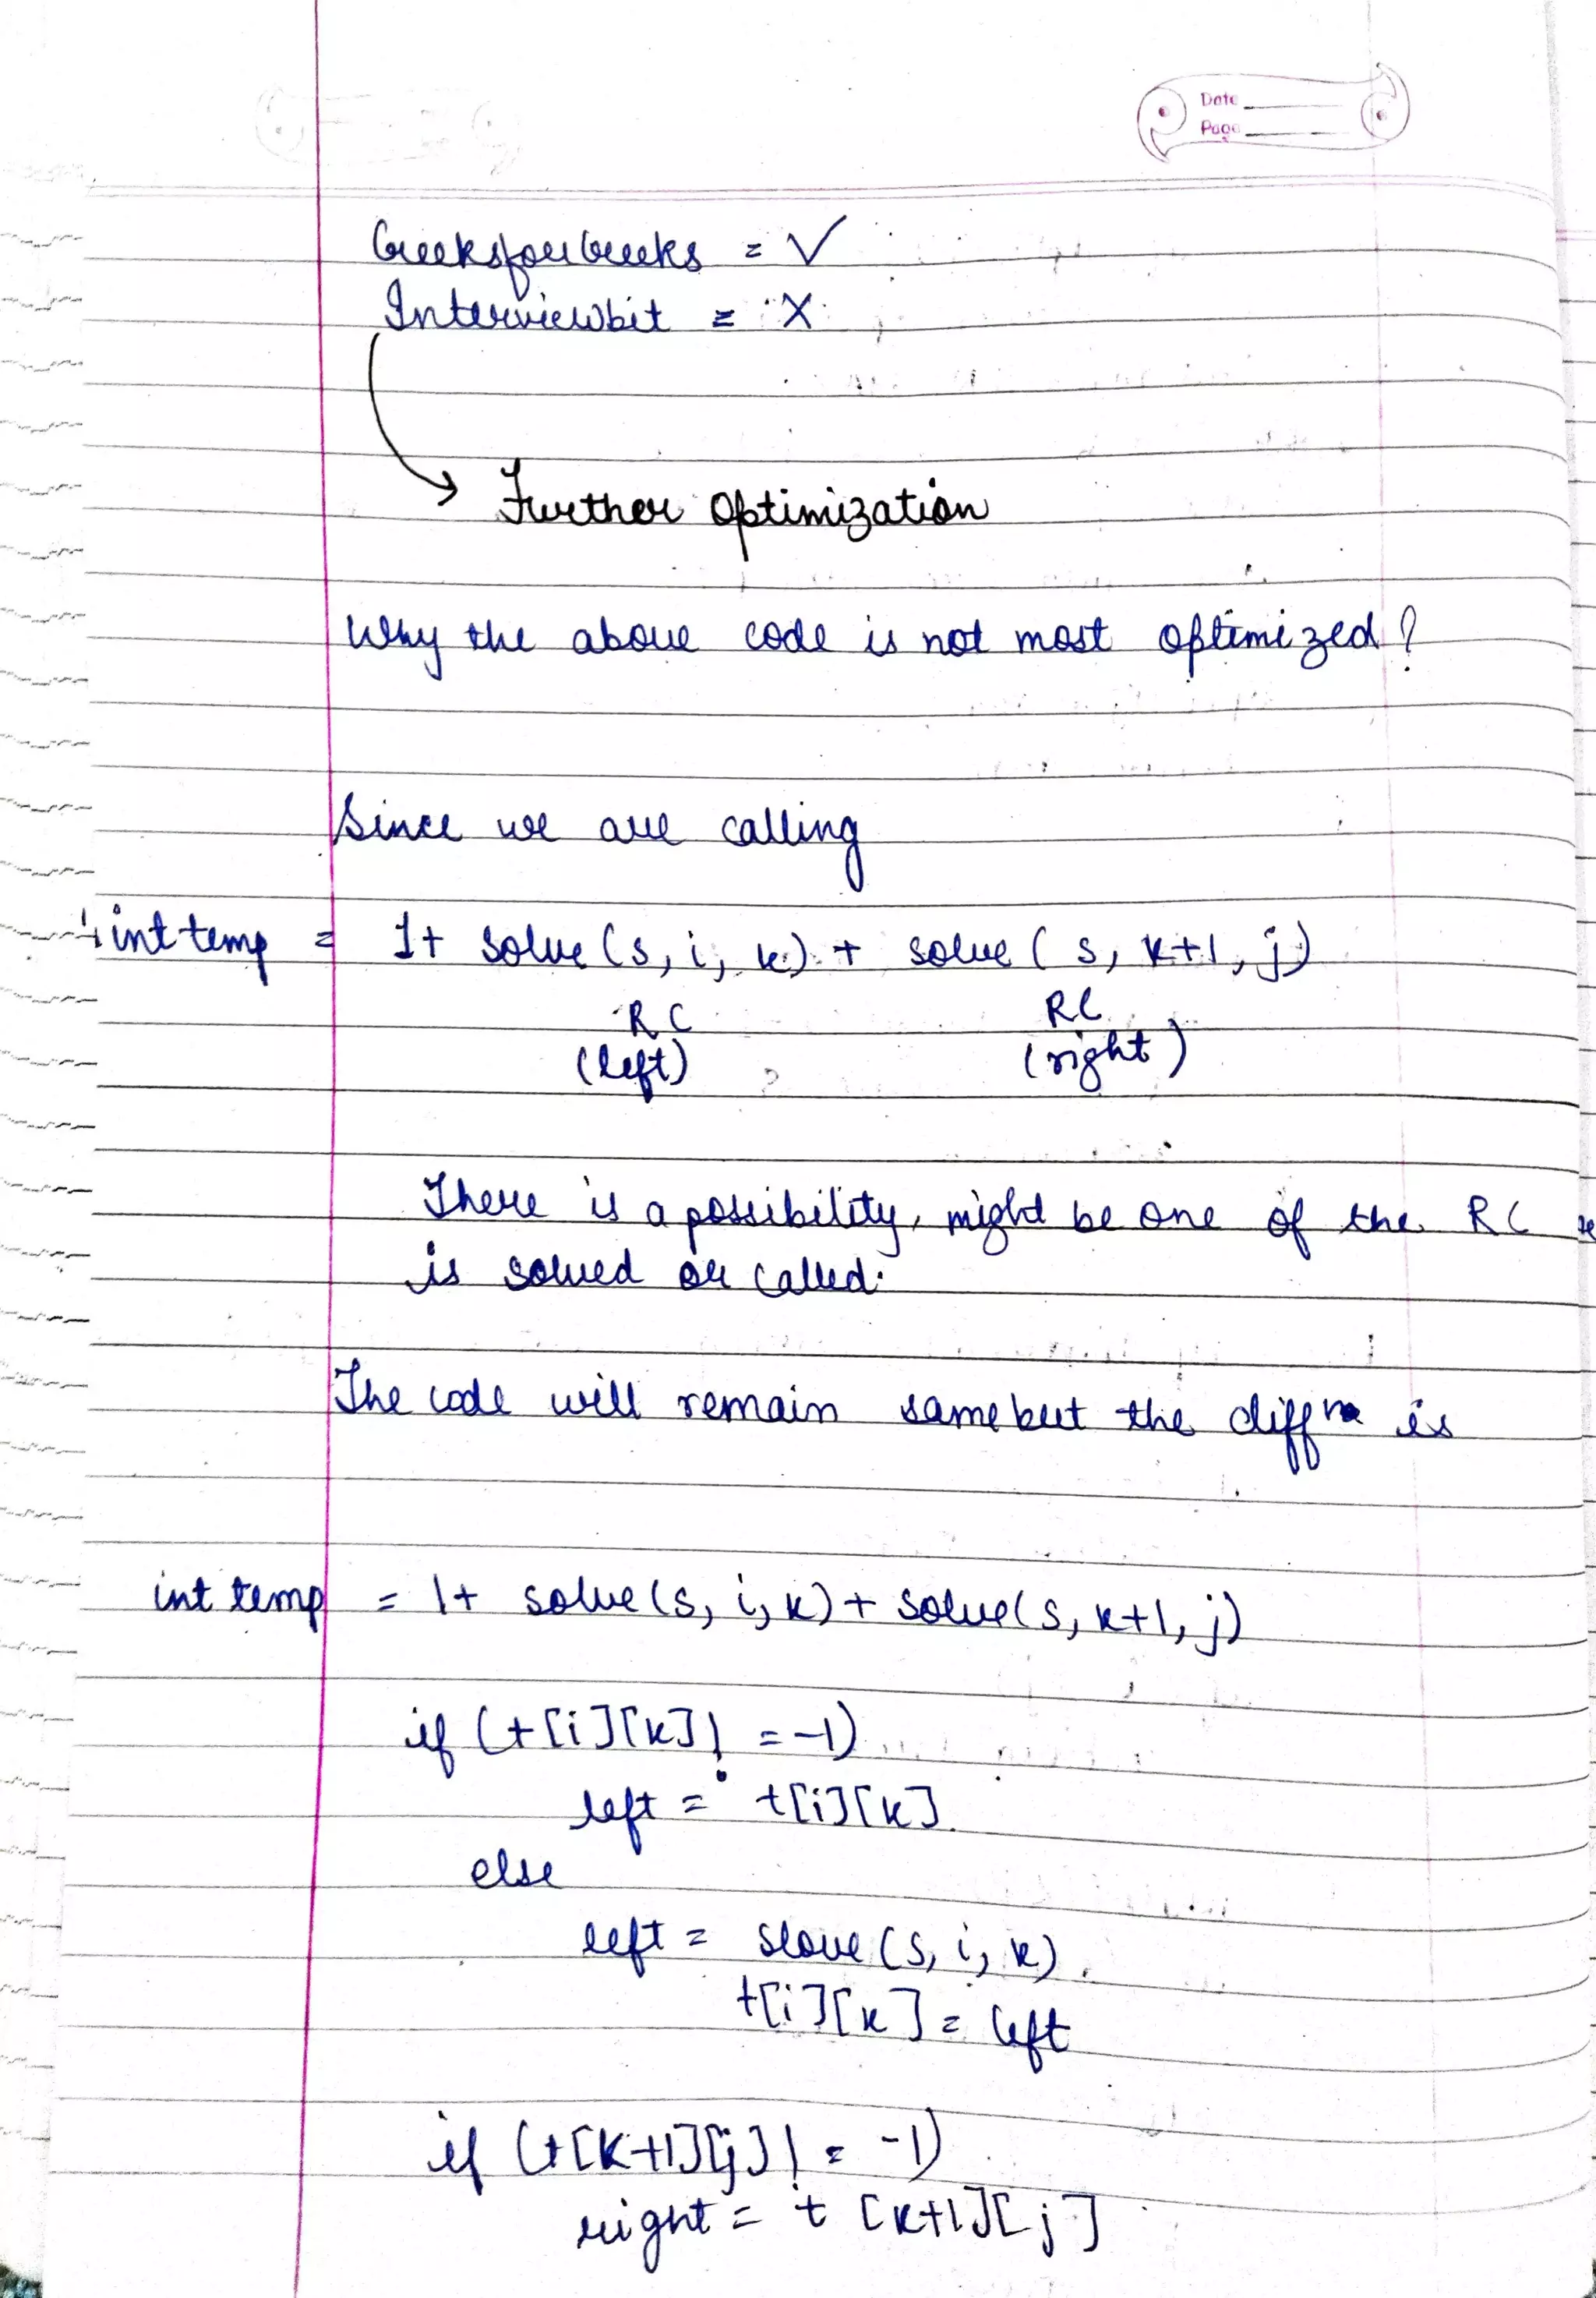 Date
Page
GeeksforGeeks = ✓
Interviewbit = X
Further Optimization
Why the above code is not most optimized?
Since we are calling
int temp = 1+ solve(s, i, k) + solve(s, k+1, j)
RC RC
(left) (right)
There is a possibility, might be one of the RC
is solved or called.
The code will remain same but the diffn is
int temp = 1+ solve(s, i, k) + solve(s, k+1, j)
if (t[i][k] != -1)
left = t[i][k]
else
left = slove(s, i, k)
t[i][k] = left
if (t[k+1][j] != -1)
right = t[k+1][j]